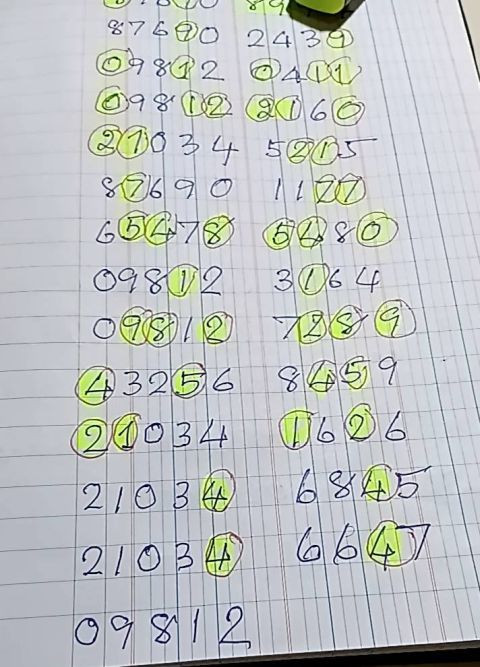 87690 2439
09812 0411
09812 2160
21034 5215
87690 1177
65478 5480
09812 3164
09812 7289
43256 8459
21034 1626
21034 6845
21034 6647
09812